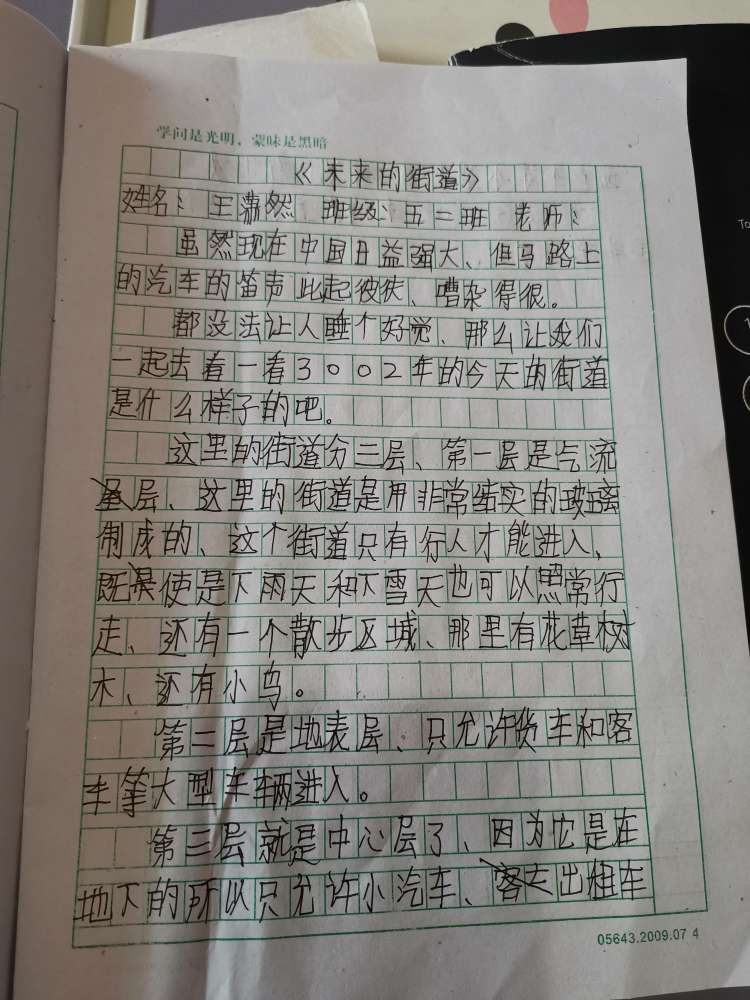 学问是光明，蒙昧是黑暗
《未来的街道》
姓名：王潇然 班级：五二班 老师：
虽然现在中国日益强大、但马路上
的汽车的笛声此起彼伏、嘈杂得很。
都没法让人睡个好觉、那么让我们
一起去看一看3002年的今天的街道
是什么样子的吧。
这里的街道分三层、第一层是气流
层、这里的街道是用非常结实的玻璃
制成的、这个街道只有行人才能进入、
既使是下雨天和下雪天也可以照常行
走、还有一个散步区域、那里有花草树
木、还有小鸟。
第二层是地表层、只允许货车和客
车等大型车辆进入。
第三层就是中心层了、因为它是在
地下的所以只允许小汽车、出租车
05643.2009.07 4